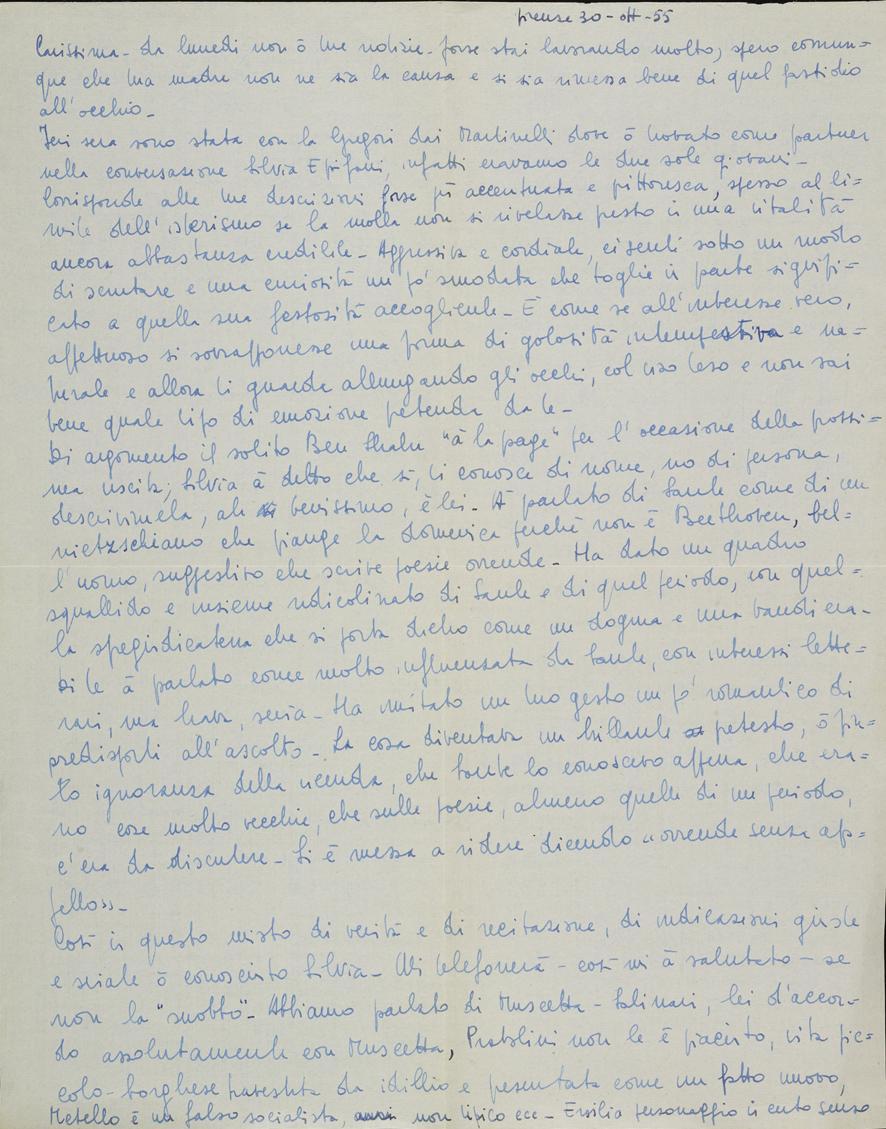 Firenze 30-ott-55
Carissima - da lunedì non ò tue notizie - forse stai lavorando molto, spero comun=
que che tua madre non ne sia la causa e si sia rimessa bene di quel fastidio
all'occhio -
Ieri sera sono stata con la Gregori dai Martinelli dove ò trovato come partner
nella conversazione Silvia Epifani, infatti eravamo le due sole giovani -
Corrisponde alle tue descrizioni forse più accentuata e pittoresca, spesso al li=
mite dell'isterismo se la molla non si rivelasse presto in una vitalità
ancora abbastanza credibile - Aggressiva e cordiale, ci senti sotto un modo
di scrutare e una curiosità un po' smodata che toglie in parte signifi=
cato a quella sua festosità accogliente - È come se all'interesse vero,
affettuoso si sovrapponesse una forma di golosità intempestiva e na=
turale e allora ti guarda allungando gli occhi, col viso teso e non sai
bene quale tipo di emozione pretenda da te -
Di argomento il solito Ben Shahn "à la page" per l'occasione della prossi=
ma uscita; Silvia à detto che sì, ti conosce di nome, no di persona,
descrivimela, ah benissimo, è lei - À parlato di Saule come di un
nietzschiano che piange la domenica perché non è Beethoven, bel=
l'uomo, suggestivo che scrive poesie orrende - Ha dato un quadro
squallido e insieme ridicolizzato di Saule e di quel periodo, con quel=
la spregiudicatezza che si porta dietro come un dogma e una bandiera -
Di te à parlato come molto influenzata da Saule, con interessi lette=
rari, ma brava, seria - Ha imitato un tuo gesto un po' romantico di
predisporti all'ascolto - La cosa diventava un brillante pretesto, ò fin=
to ignoranza della vicenda, che Saule lo conoscevo appena, che era=
no cose molto vecchie, che sulle poesie, almeno quelle di un periodo,
c'era da discutere - Si è messa a ridere dicendo "orrende senza ap=
pello" -
Così in questo misto di verità e di recitazione, di indicazioni giuste
e sviate ò conosciuto Silvia - Mi telefonerà - così mi à salutato - se
non la "snobbo" - Abbiamo parlato di Muscetta - Salinari, lei d'accor=
do assolutamente con Muscetta, Pratolini non le è piaciuto, vita pic=
colo-borghese travestita da idillio e presentata come un fatto nuovo,
Metello è un falso socialista, non tipico ecc - Ersilia personaggio in certo senso